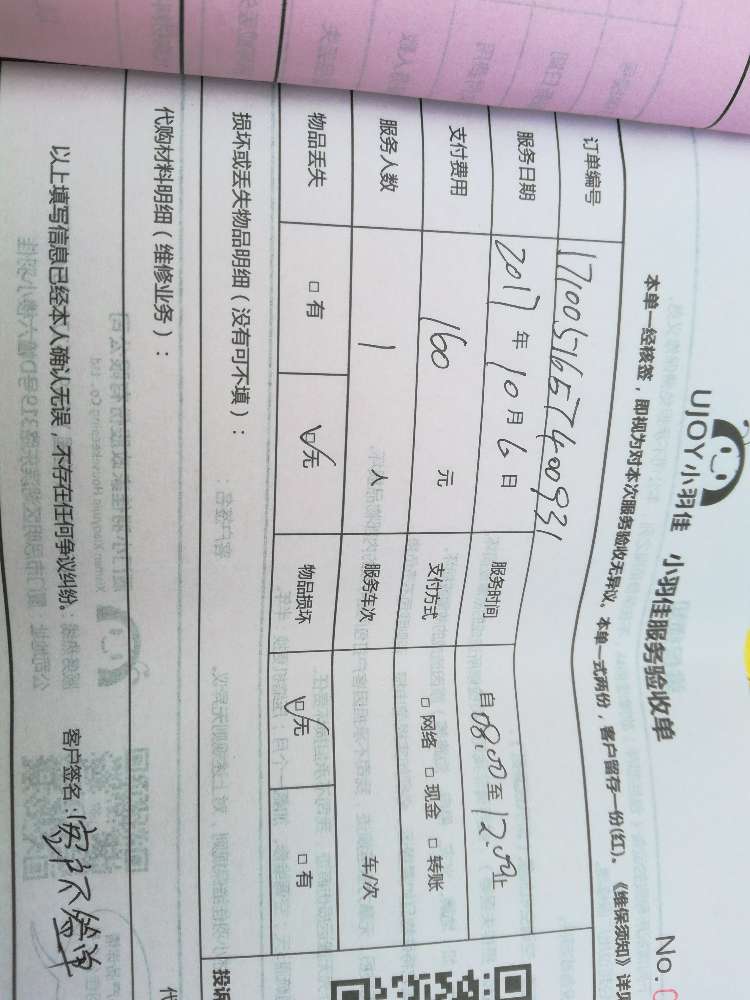 UJOY小羽佳 小羽佳服务验收单
No.
本单一经核签，即视为对本次服务验收无异议。本单一式两份，客户留存一份(红)。《维保须知》详见
订单编号 17100516574400931
服务日期 2017年10月6日 服务时间 自08.00至12.00止
支付费用 160元 支付方式 □网络 □现金 □转账
服务人数 1人 服务车次 车/次
物品丢失 □有 ☑无 物品损坏 ☑无 □有
损坏或丢失物品明细（没有可不填）：
投诉
代购材料明细（维修业务）：
代
以上填写信息已经本人确认无误，不存在任何争议纠纷。 客户签名：客户不签单